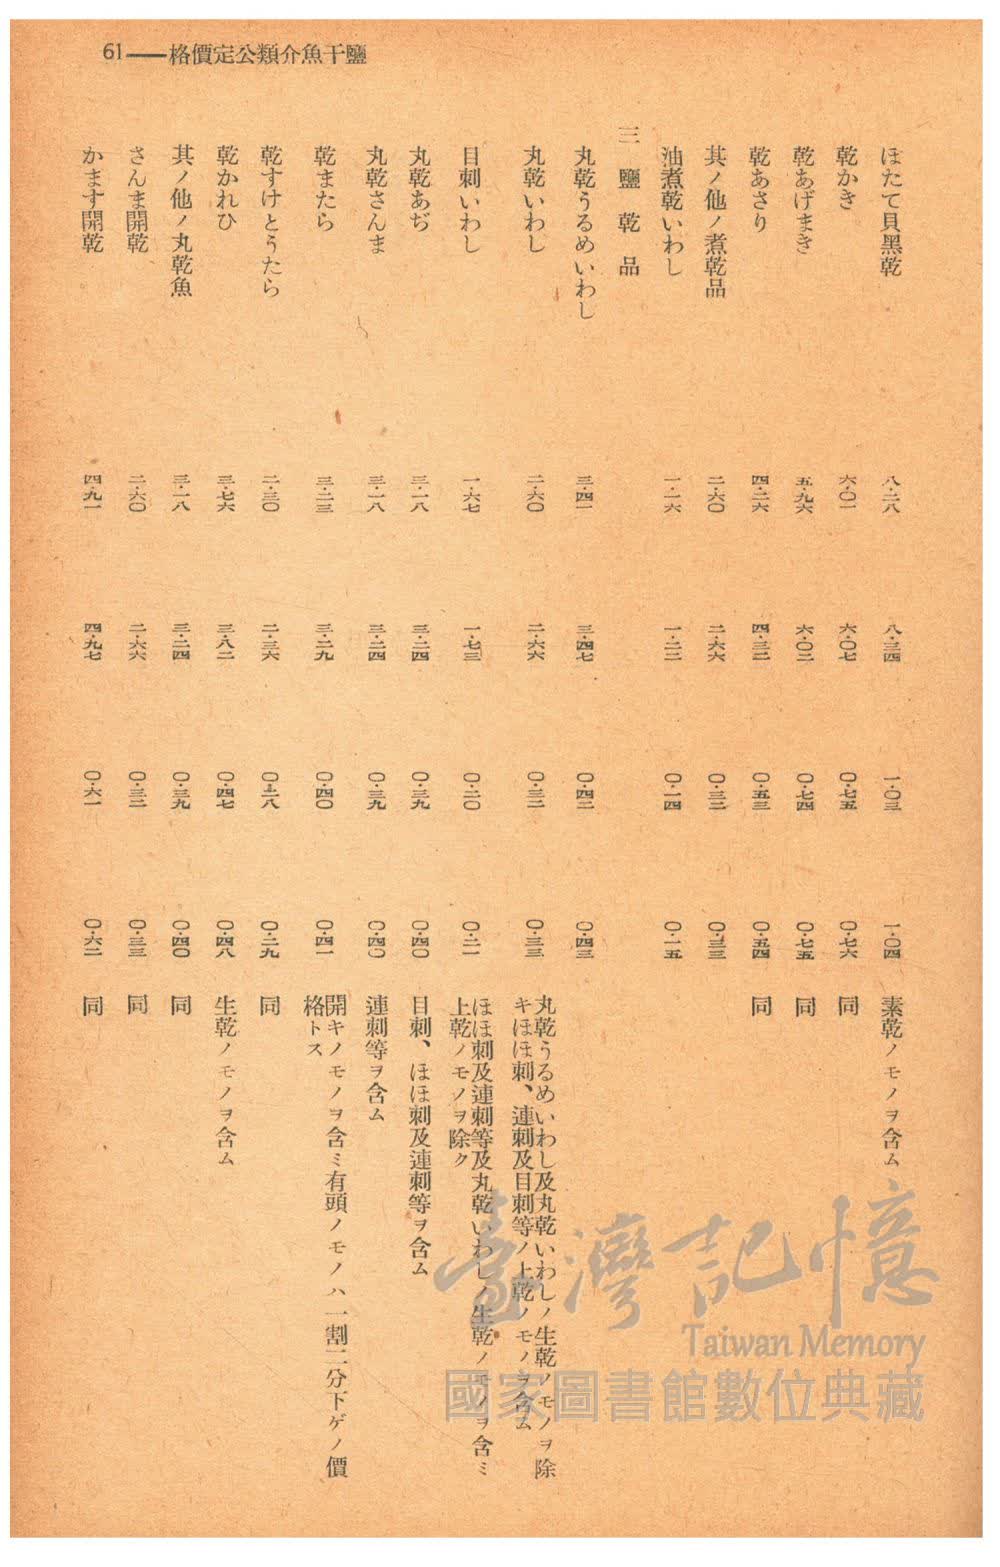 61——格價定公類介魚干鹽
ほたて貝黑乾 八・二八 八・三四 一・〇三 一・〇四 素乾ノモノヲ含ム
乾かき 六・〇一 六・〇七 〇・七五 〇・七六 同
乾あげまき 五・九六 六・〇二 〇・七四 〇・七五 同
乾あさり 四・二六 四・三二 〇・五三 〇・五四 同
其ノ他ノ煮乾品 二・六〇 二・六六 〇・三二 〇・三三
油煮乾いわし 一・一六 一・二二 〇・一四 〇・一五
三 鹽乾品
丸乾うるめいわし 三・四一 三・四七 〇・四二 〇・四三
丸乾いわし 二・六〇 二・六六 〇・三二 〇・三三 丸乾うるめいわし及丸乾いわしノ生乾ノモノヲ除
キほほ刺、連刺及目刺等ノ上乾ノモノヲ含ム
目刺いわし 一・六七 一・七三 〇・二〇 〇・二一 ほほ刺及連刺等及丸乾いわしノ生乾ノモノヲ含ミ
上乾ノモノヲ除ク
丸乾あぢ 三・一八 三・二四 〇・三九 〇・四〇 目刺、ほほ刺及連刺等ヲ含ム
丸乾さんま 三・一八 三・二四 〇・三九 〇・四〇 連刺等ヲ含ム
乾またら 三・二三 三・二九 〇・四〇 〇・四一 開キノモノヲ含ミ有頭ノモノハ一割二分下ゲノ價
格トス
乾すけとうたら 二・三〇 二・三六 〇・二八 〇・二九 同
乾かれひ 三・七六 三・八二 〇・四七 〇・四八 生乾ノモノヲ含ム
其ノ他ノ丸乾魚 三・一八 三・二四 〇・三九 〇・四〇 同
さんま開乾 二・六〇 二・六六 〇・三二 〇・三三 同
かます開乾 四・九一 四・九七 〇・六一 〇・六二 同
臺灣記憶
Taiwan Memory
國家圖書館數位典藏